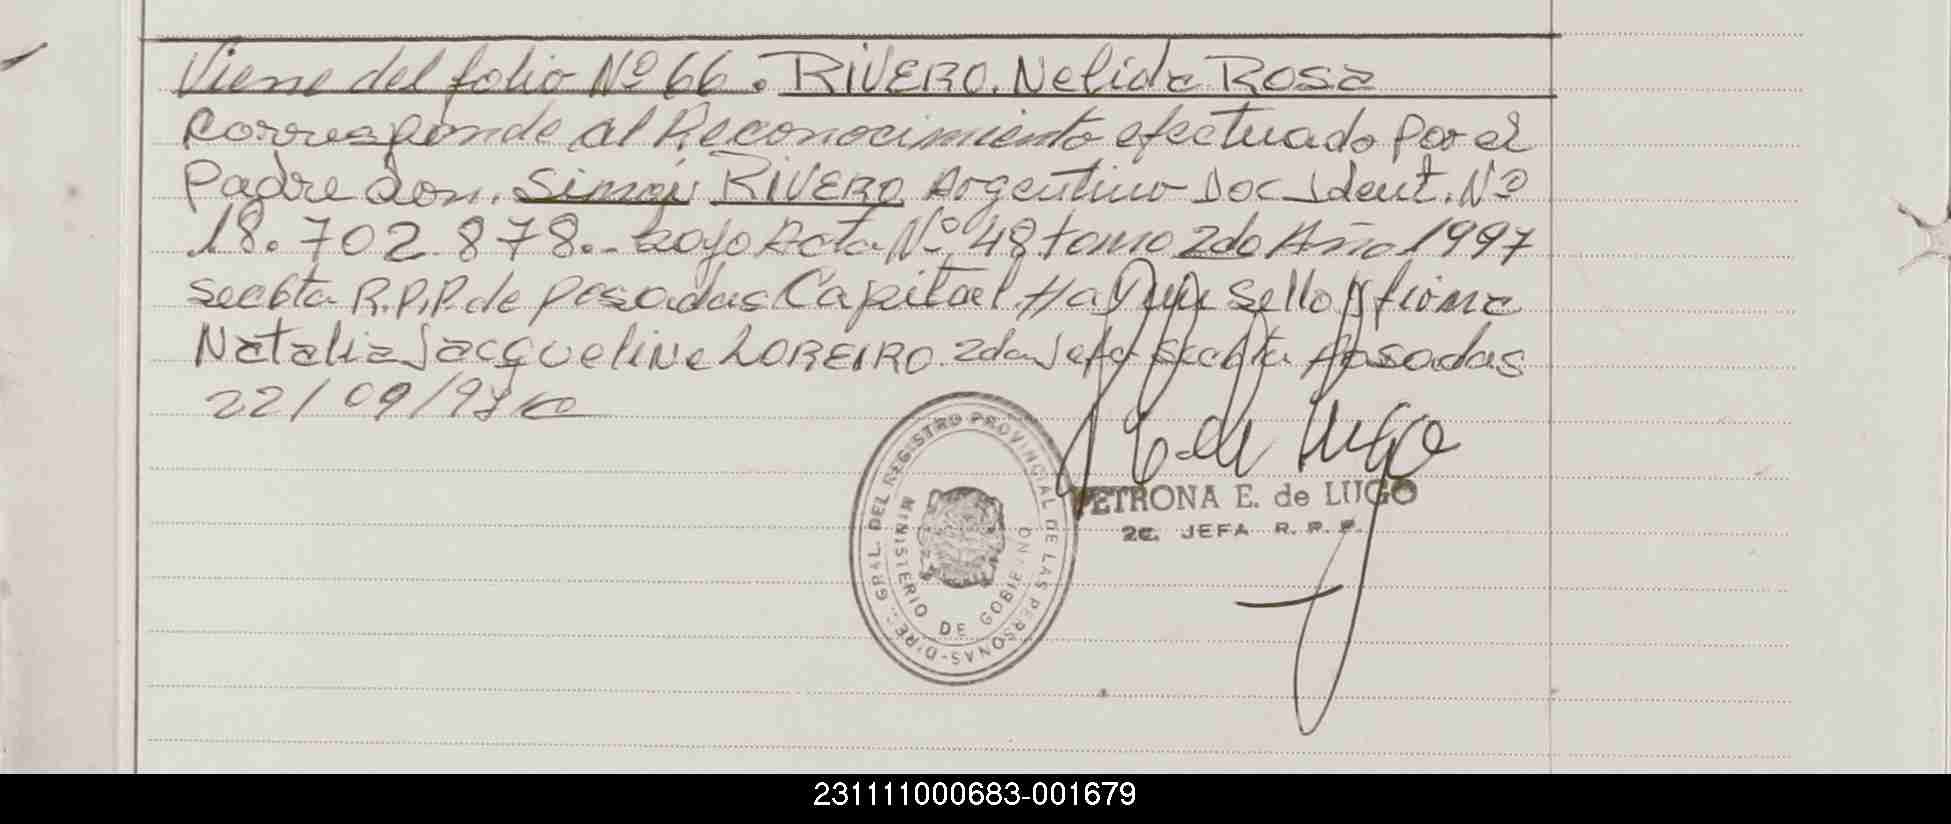 Viene del folio Nº 66. RIVERO. Nelida Rosa
Corresponde al Reconocimiento efectuado por el
Padre don. Simón RIVERO Argentino Doc Ident. Nº
18.702.878.- bajo Acta Nº 48 tomo 2do Año 1997
Secbta R.P.P. de Posadas Capital Hay un sello y firma
Natalia Jacqueline LOREIRO 2da Jefa Secbta Posadas
22/09/97
GRAL. DEL REGISTRO PROVINCIAL DE LAS PERSONAS-DIREC.
MINISTERIO DE GOBIERNO
PETRONA E. de LUGO
2E. JEFA R. P. P.
231111000683-001679